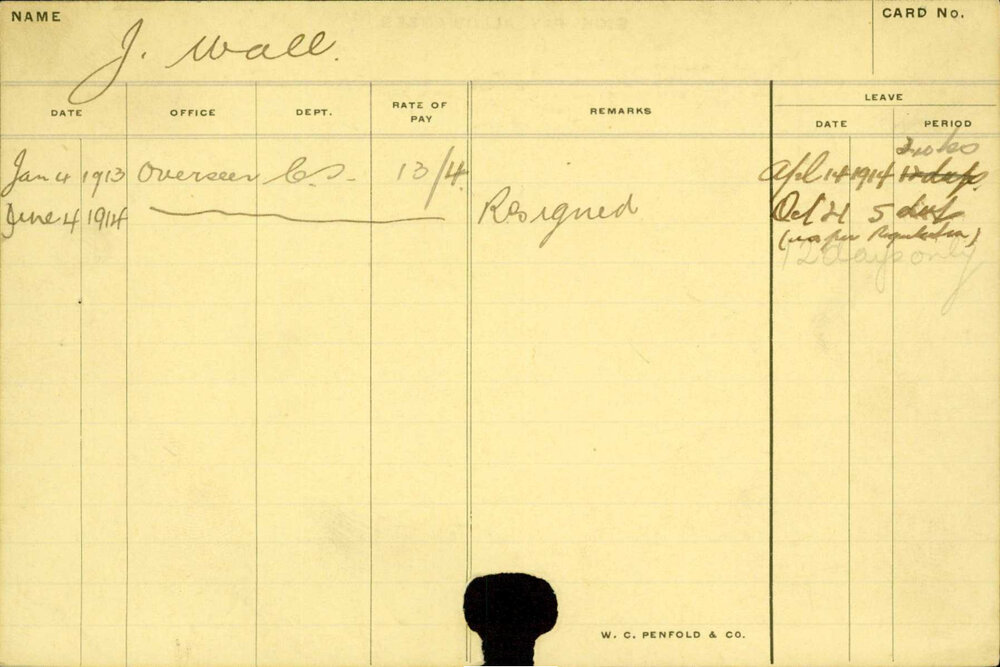 NAME
CARD No.
J. Wall.
DATE OFFICE DEPT. RATE OF PAY REMARKS LEAVE
DATE PERIOD
2 wks
Jan 4 1913 Overseer C.S. 13/4 Apl 14 1914 12 days
June 4 1914 Resigned Oct 21 5 days
(as per Regulation)
12 days only
W. C. PENFOLD & CO.